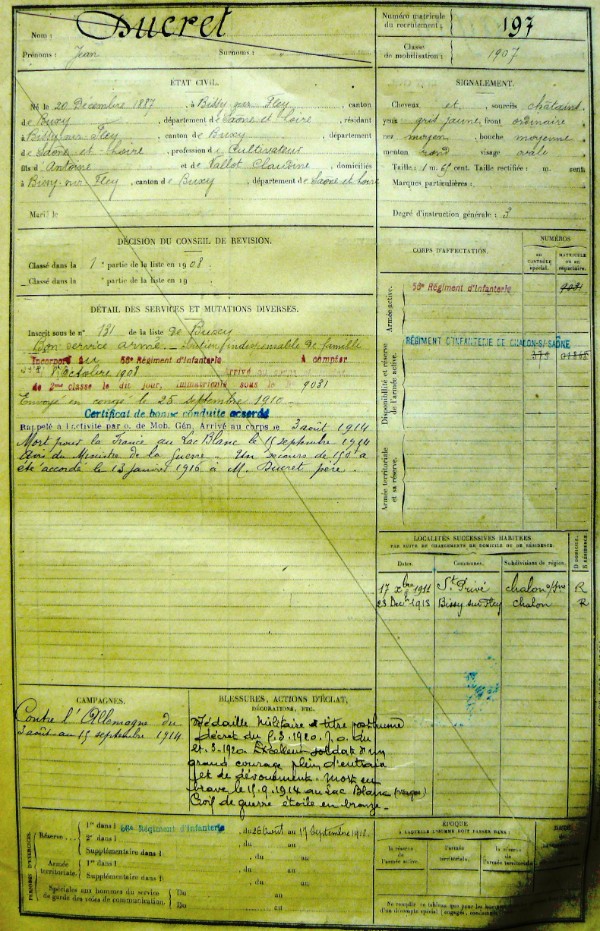 Nom : Ducret
Prénoms : Jean Surnoms :
Numéro matricule du recrutement : 197
Classe de mobilisation : 1907
ÉTAT CIVIL.
Né le 20 Décembre 1887, à Bissy sur Fley, canton
de Buxy, département de Saône et Loire, résidant
à Bissy sur Fley, canton de Buxy, département
de Saône et Loire, profession de Cultivateur
fils d'Antoine et de Vallot Claudine, domiciliés
à Bissy sur Fley, canton de Buxy, département de Saône et Loire
Marié le
SIGNALEMENT.
Cheveux et sourcils châtains
yeux gris jaune, front ordinaire
nez moyen, bouche moyenne
menton rond visage ovale
Taille : 1 m. cent. Taille rectifiée : m. cent.
Marques particulières :
Degré d'instruction générale : 3
DÉCISION DU CONSEIL DE REVISION.
Classé dans la 1e partie de la liste en 1908.
Classé dans la partie de la liste en 19
DÉTAIL DES SERVICES ET MUTATIONS DIVERSES.
Inscrit sous le n° 131 de la liste de Buxy
Bon service armé. Soutien indispensable de famille
Incorporé au 56e Régiment d'Infanterie à compter
8 Octobre 1908 Arrivé au corps
de 2me classe le dit jour, immatriculé sous le 9031
Envoyé en congé le 25 septembre 1910
Certificat de bonne conduite accordé
Rappelé à l'activité par o. de Mob. Gén. Arrivé au corps le 3 août 1914
Mort pour la France au Lac Blanc le 15 septembre 1914
Avis du Ministre de la Guerre. Un secours de 150 a
été accordé le 13 janvier 1916 à M. Ducret père.
CORPS D'AFFECTATION.
NUMÉROS
AU CONTRÔLE spécial.
MATRICULE OU AU répertoire.
Armée active.
56e Régiment d'Infanterie
9031
Disponibilité et réserve de l'armée active.
RÉGIMENT D'INFANTERIE DE CHALON-S/-SAÔNE
Armée territoriale et sa réserve.
LOCALITÉS SUCCESSIVES HABITÉES
PAR SUITE DE CHANGEMENTS DE DOMICILE OU DE RÉSIDENCE.
D. DOMICILE. R. RÉSIDENCE.
Dates. Communes. Subdivisions de région.
17 xbre 1911 St Privé Chalon s/Sne R
23 Déc. 1913 Bissy sur Fley Chalon R
CAMPAGNES.
Contre l'Allemagne du
3 août au 15 septembre 1914
BLESSURES, ACTIONS D'ÉCLAT,
DÉCORATIONS, ETC.
Médaille Militaire à titre posthume
décret du 3.1920. J.O. du
3.1920 Excellent soldat d'un
grand courage plein d'entrain
et de dévouement. Mort en
brave le 15.9.1914 au Lac Blanc (Vosges)
Croix de guerre étoile en bronze.
PÉRIODES D'EXERCICES.
Réserve
1re dans l 56e Régiment d'Infanterie, du 26 août au 17 Septembre 1913.
2e dans l , du au
Supplémentaire dans l , du au
Armée territoriale.
1re dans l , du au
Supplémentaire dans l , du au
Spéciales aux hommes du service de garde des voies de communication.
Du au
Du au
ÉPOQUE
À LAQUELLE L'HOMME DOIT PASSER DANS :
la réserve de l'armée active.
l'armée territoriale.
la réserve de l'armée territoriale.